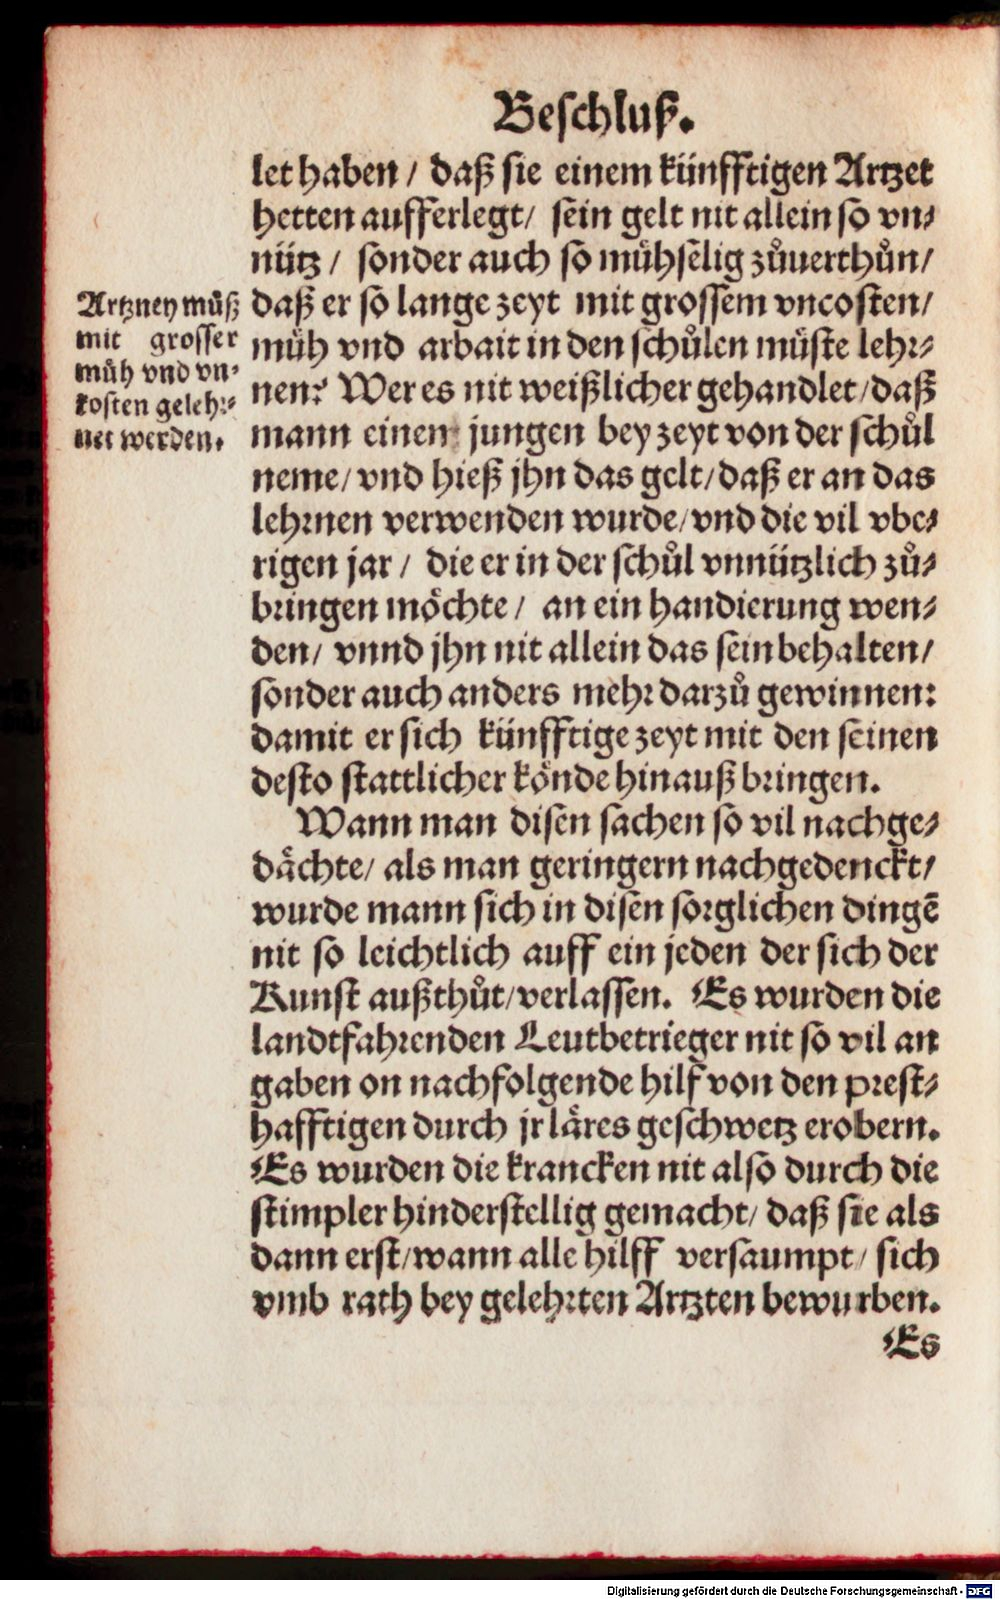 Beschluß.
let haben / daß sie einem künfftigen Artzet
hetten aufferlegt / sein gelt nit allein so vn⸗
nütz / sonder auch so mühselig zůuerthůn /
daß er so lange zeyt mit grossem vncosten /
müh vnd arbait in den schůlen müste lehr⸗
nen? Wer es nit weißlicher gehandlet / daß
mann einen jungen bey zeyt von der schůl
neme / vnd hieß jhn das gelt / daß er an das
lehrnen verwenden wurde / vnd die vil vbe⸗
rigen jar / die er in der schůl vnnützlich zů⸗
bringen möchte / an ein handierung wen⸗
den / vnnd jhn nit allein das sein behalten /
sonder auch anders mehr darzů gewinnen:
damit er sich künfftige zeyt mit den seinen
desto stattlicher könde hinauß bringen.
Wann man disen sachen so vil nachge⸗
dächte / als man geringern nachgedenckt /
wurde mann sich in disen sorglichen dingẽ
nit so leichtlich auff ein jeden der sich der
Kunst außthůt / verlassen. Es wurden die
landtfahrenden Leutbetrieger nit so vil an
gaben on nachfolgende hilf von den prest⸗
hafftigen durch jr läres geschwetz erobern.
Es wurden die krancken nit also durch die
stimpler hinderstellig gemacht / daß sie als
dann erst / wann alle hilff versaumpt / sich
vmb rath bey gelehrten Artzten bewurben.
Es
Artzney můß
mit grosser
müh vnd vn⸗
kosten gelehr⸗
net werden.
Digitalisierung gefördert durch die Deutsche Forschungsgemeinschaft - DFG